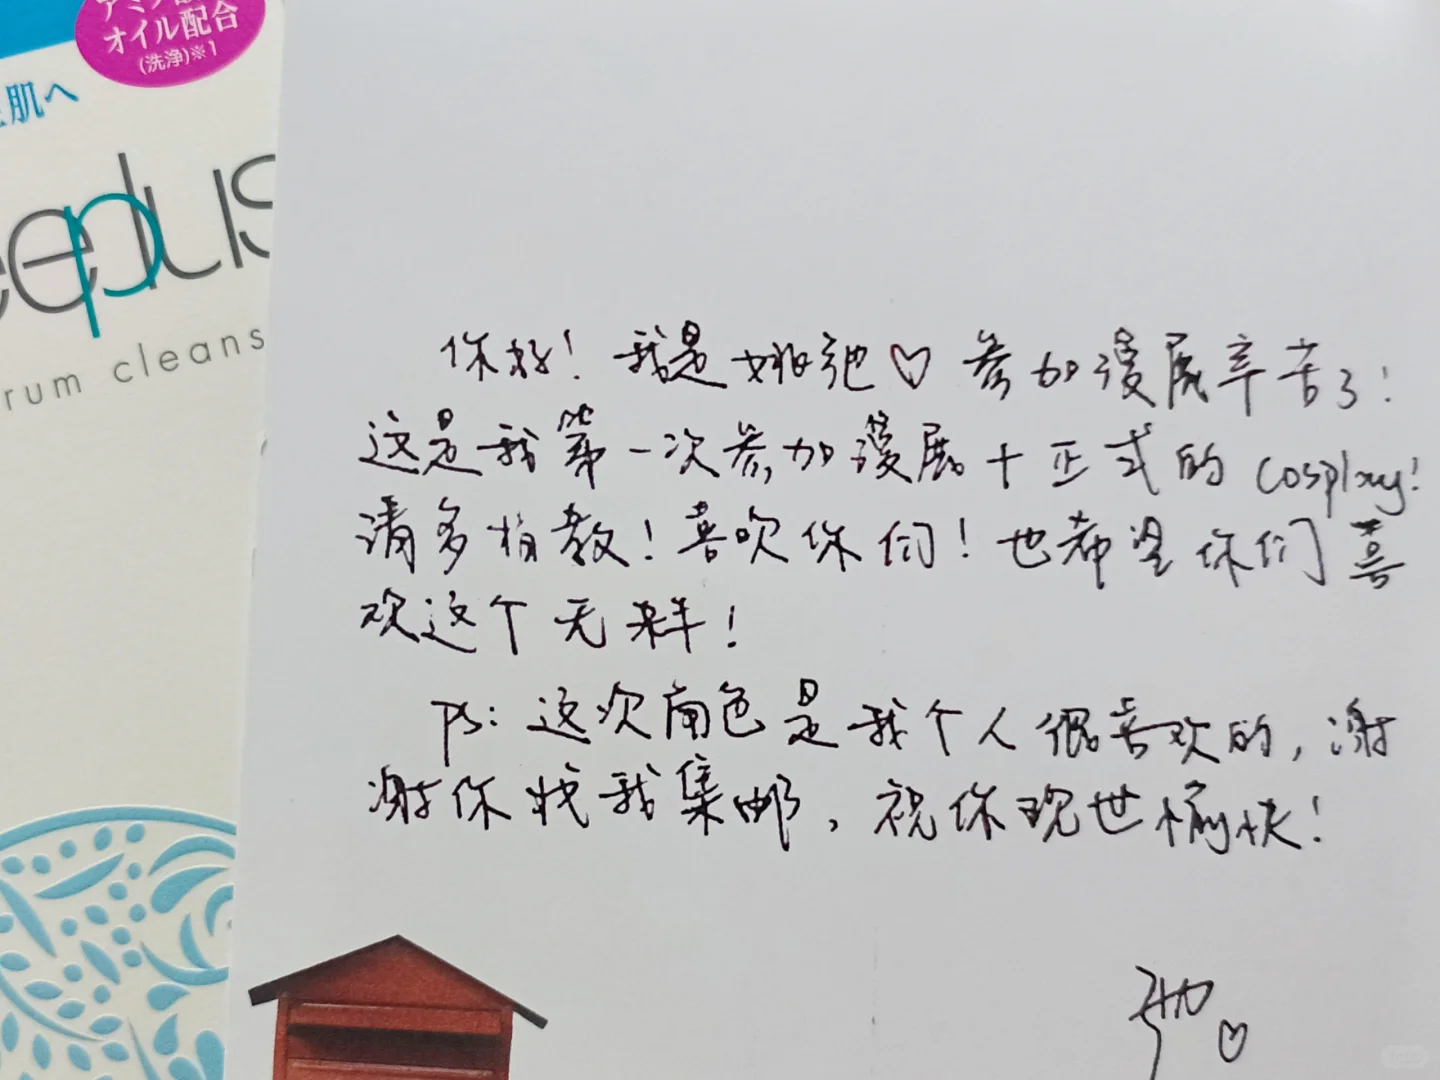 オイル配合
(洗浄)※1
肌へ
eeplus
rum cleans
你好！我是姚弛♡ 参加漫展辛苦了！
这是我第一次参加漫展+正式的cosplay！
请多指教！喜欢你们！也希望你们喜
欢这个无咩！
PS：这次角色是我个人很喜欢的，谢
谢你找我集邮，祝你现世愉快！
弛♡